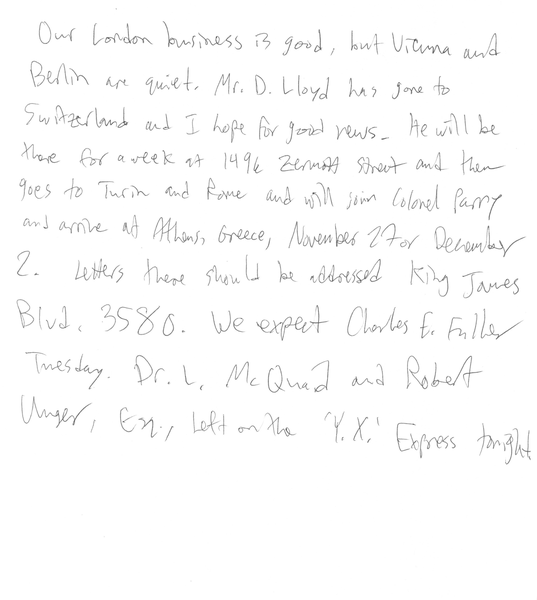 Our London business is good, but Vienna and
Berlin are quiet. Mr. D. Lloyd has gone to
Switzerland and I hope for good news. He will be
there for a week at 1496 Zermott street and then
goes to Turin and Rome and will join Colonel Parry
and arrive at Athens, Greece, November 27 or December
2. Letters there should be addressed King James
Blvd. 3580. We expect Charles E. Fuller
Tuesday. Dr. L. McQuaid and Robert
Unger, Esq., left on the 'Y.X.' Express tonight